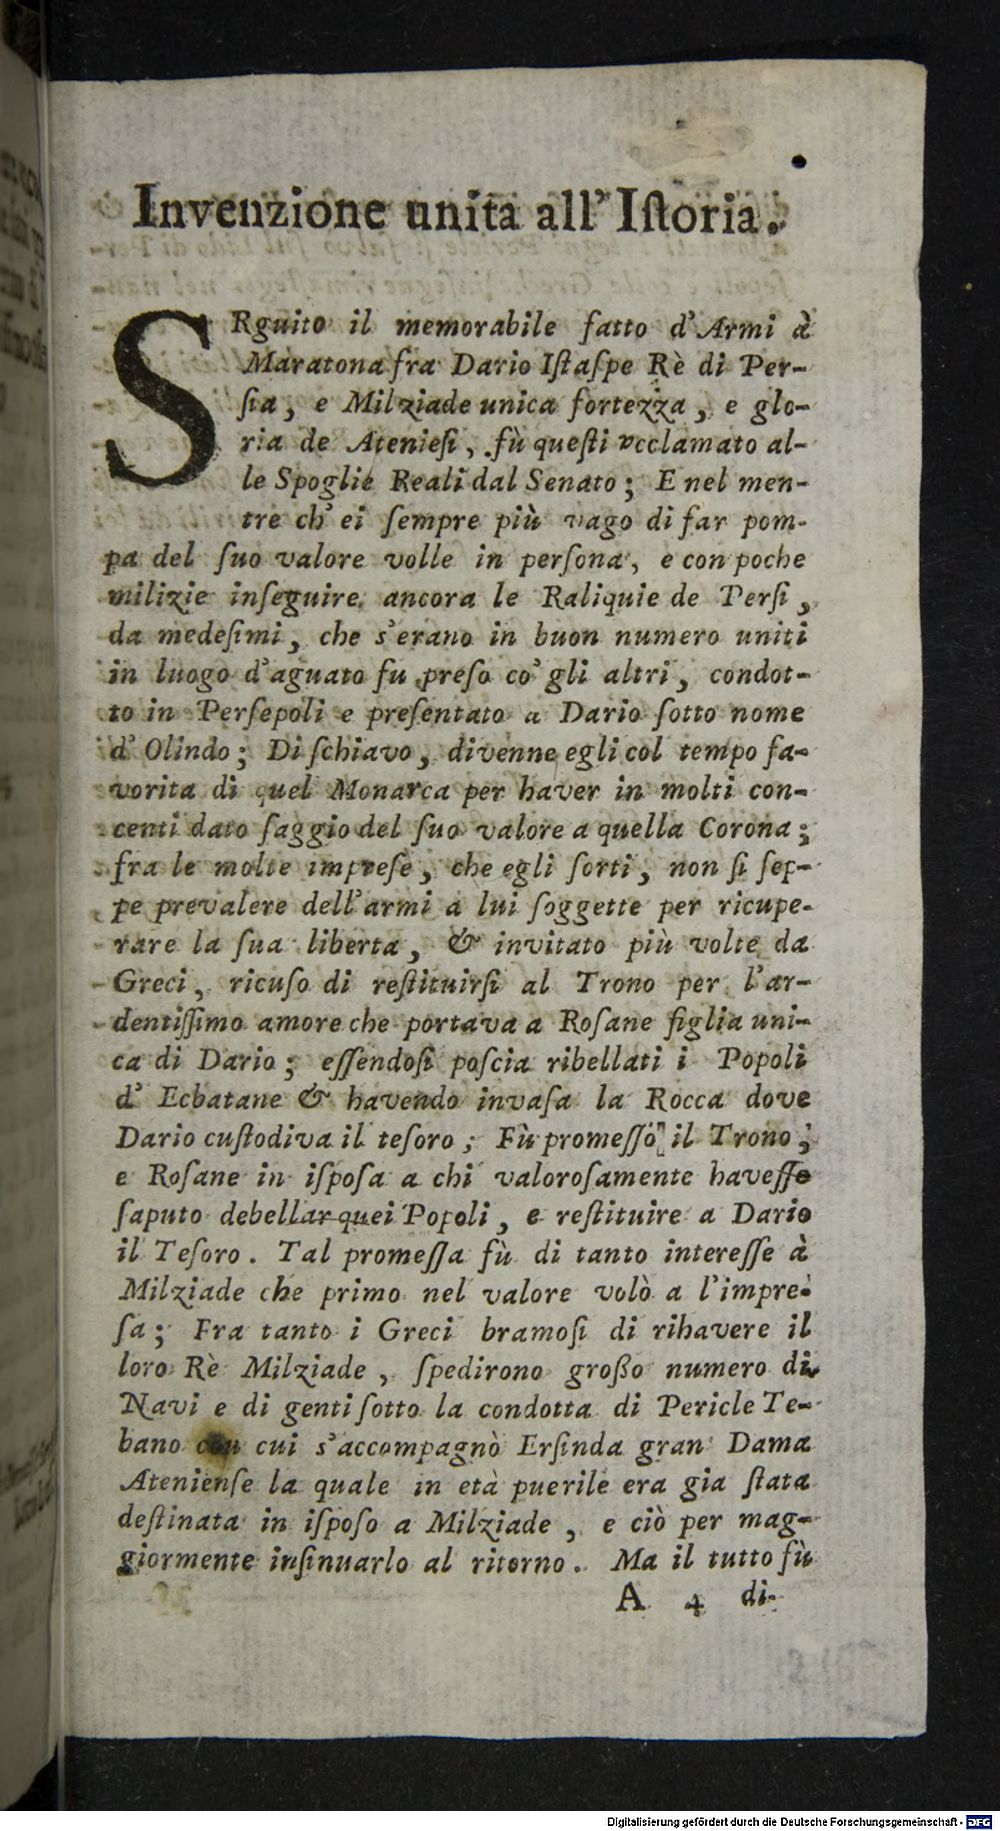 Invenzione unita all' Iſtoria.
SRguito il memorabile fatto d'Armi à
Maratona fra Dario Iſtaſpe Rè di Per-
ſia, e Milziade unica fortezza, e glo-
ria de Atenieſi, fù queſti vcclamato al-
le Spoglie Reali dal Senato; E nel men-
tre ch' ei ſempre più vago di far pom-
pa del ſuo valore volle in perſona, e con poche
milizie inſeguire ancora le Raliquie de Perſi,
da medeſimi, che s'erano in buon numero uniti
in luogo d'aguato fu preſo co' gli altri, condot-
to in Perſepoli e preſentato a Dario ſotto nome
d' Olindo; Di ſchiavo, divenne egli col tempo fa-
vorita di quel Monarca per haver in molti con-
centi dato ſaggio del ſuo valore a quella Corona;
fra le molte impreſe, che egli ſorti, non ſi ſep-
pe prevalere dell'armi a lui ſoggette per ricupe-
rare la ſua liberta, & invitato più volte da
Greci, ricuſo di reſtituirſi al Trono per l'ar-
dentiſſimo amore che portava a Roſane figlia uni-
ca di Dario; eſſendoſi poſcia ribellati i Popoli
d' Ecbatane & havendo invaſa la Rocca dove
Dario cuſtodiva il teſoro; Fù promeſſo il Trono,
e Roſane in iſpoſa a chi valoroſamente haveſſe
ſaputo debellar quei Popoli, e reſtituire a Dario
il Teſoro. Tal promeſſa fù di tanto intereſſe à
Milziade che primo nel valore volò a l'impre-
ſa; Fra tanto i Greci bramoſi di rihavere il
loro Rè Milziade, ſpedirono großo numero di
Navi e di genti ſotto la condotta di Pericle Te-
bano con cui s'accompagnò Erſinda gran Dama
Atenienſe la quale in età puerile era gia ſtata
deſtinata in iſpoſo a Milziade, e ciò per mag-
giormente inſinuarlo al ritorno. Ma il tutto fù
A 4 di-
Digitalisierung gefördert durch die Deutsche Forschungsgemeinschaft - DFG